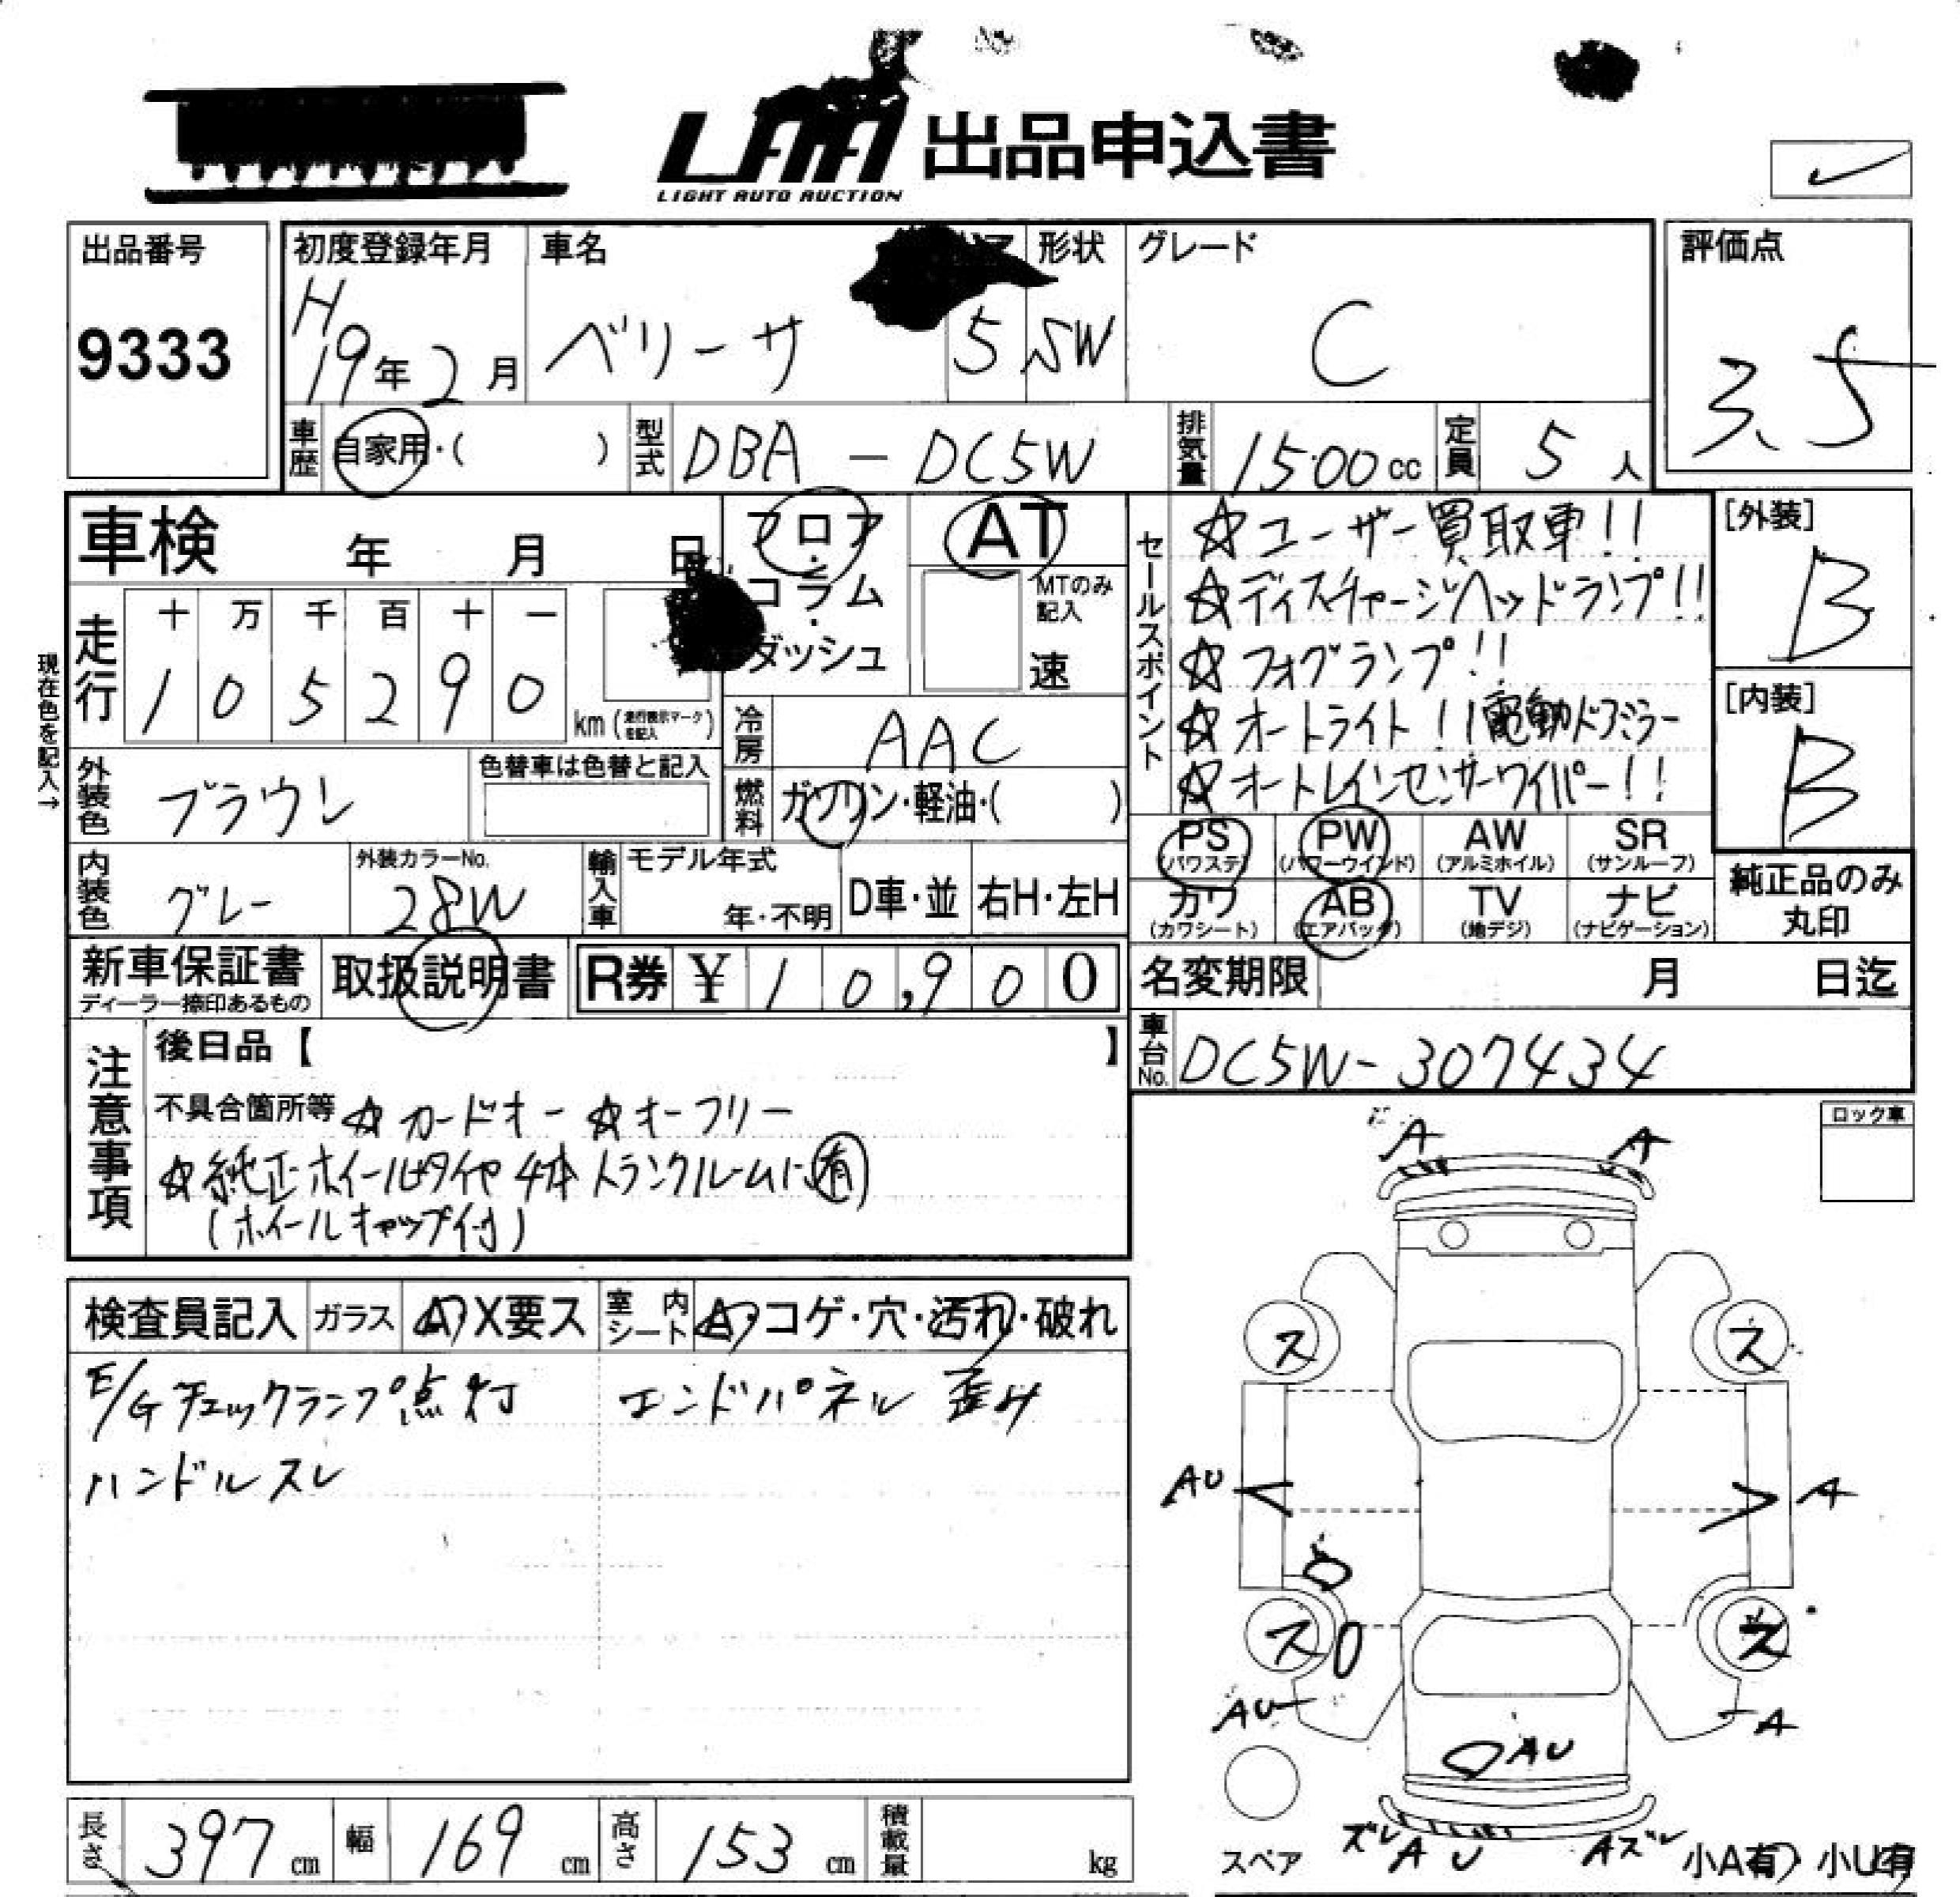 LAA 出品申込書
LIGHT AUTO AUCTION
出品番号
9333
初度登録年月
H19年2月
車名
ベリーサ
5
形状
SW
グレード
C
評価点
3.5
車歴
自家用・( )
型式
DBA - DC5W
排気量
1500cc
定員
5人
車検 年 月 日
フロア・コラム・ダッシュ
AT
MTのみ記入
速
セールスポイント
☆ユーザー買取車!!
☆ディスチャージヘッドランプ!!
☆フォグランプ!!
☆オートライト!!電動ドアミラー
☆オートレインセンサーワイパー!!
[外装]
B
[内装]
B
現在色を記入→
走行
十 万 千 百 十 一
1 0 5 2 9 0
km(走行表示マークを記入)
冷房
AAC
外装色
ブラウン
色替車は色替と記入
燃料
ガソリン・軽油・( )
PS(パワステ) PW(パワーウインド) AW(アルミホイル) SR(サンルーフ)
カワ(カワシート) AB(エアバッグ) TV(地デジ) ナビ(ナビゲーション)
純正品のみ丸印
内装色
グレー
外装カラーNo.
28W
輸入車
モデル年式
年・不明
D車・並
右H・左H
新車保証書
ディーラー捺印あるもの
取扱説明書
R券 ¥ 10,900
名変期限 月 日迄
車台No.
DC5W-307434
注意事項
後日品【 】
不具合箇所等 ☆カードキー ☆キーフリー
☆純正ホイール付タイヤ4本トランクルームに有
(ホイールキャップ付)
ロック車
検査員記入
ガラス
A・X要ス
室内シート
A・コゲ・穴・汚れ・破れ
E/Gチェックランプ点灯 エンドパネル歪み
ハンドルスレ
A A
ス ス
AU A
ス ス
AU A
AU
ズレ A U Aズレ
スペア
小A有 小U有
長さ 397cm
幅 169cm
高さ 153cm
積載量 kg